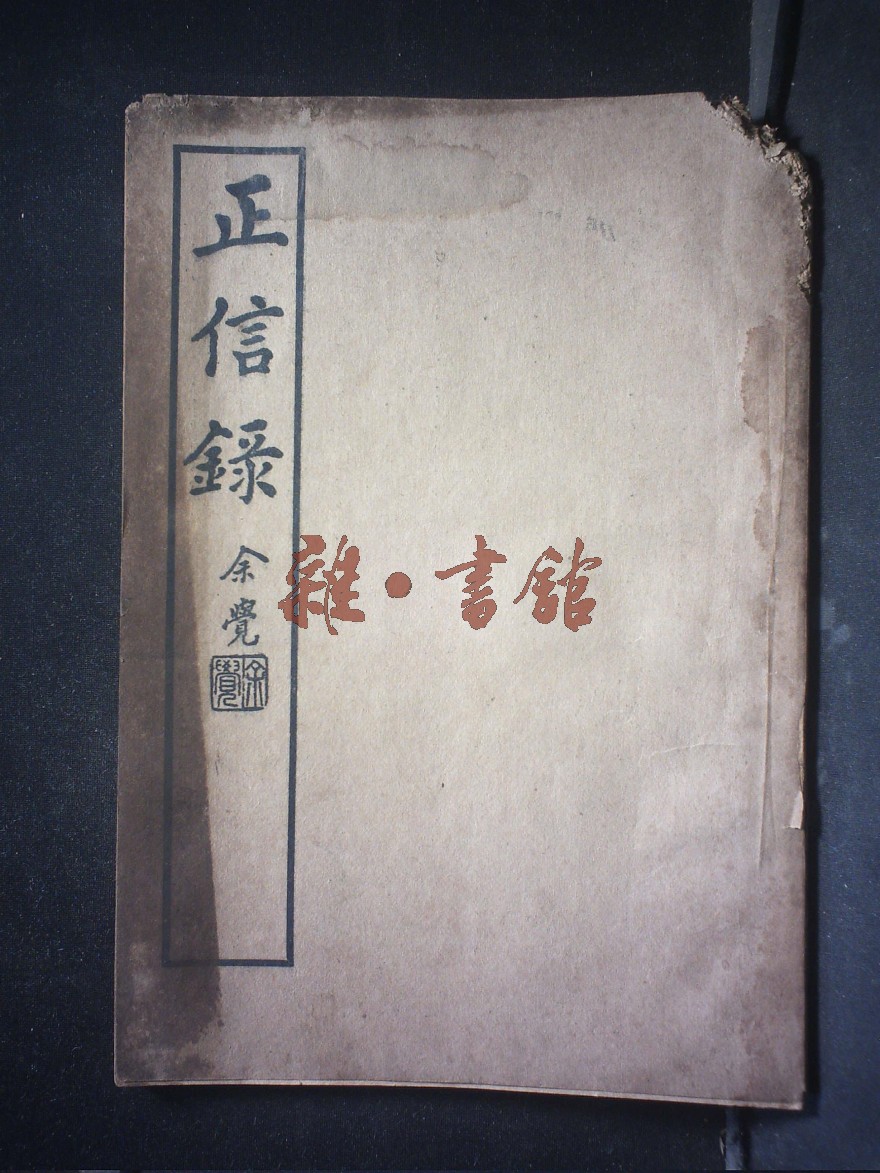 正信錄
余覺
余覺
雜·書館